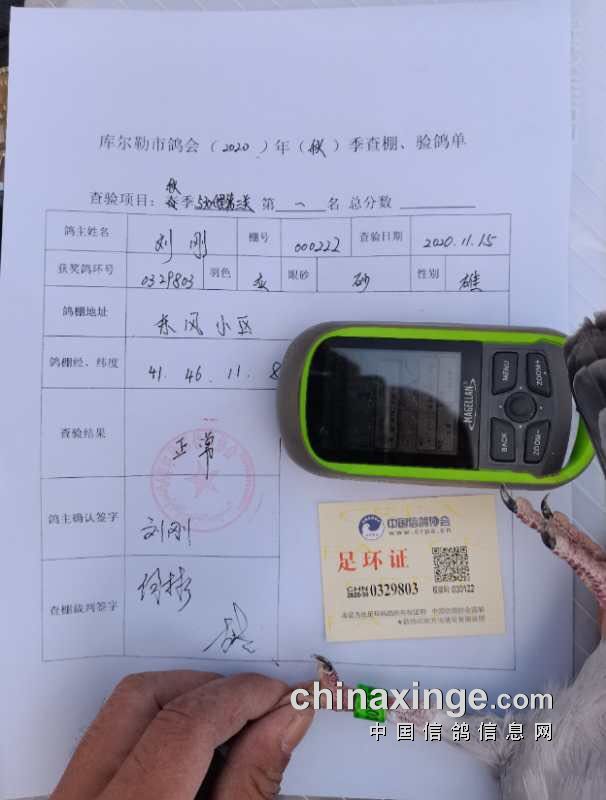 库尔勒市鸽会（2020）年（秋）季查棚、验鸽单
查验项目: 秋季 第一名 总分数
鸽主姓名 刘刚 棚号 000222 查验日期 2020.11.15
获奖鸽环号 0329803 羽色 灰 眼砂 砂 性别 雄
鸽棚地址 东风小区
鸽棚经、纬度 41.46.11.8
查验结果 正常
鸽主确认签字 刘刚
查棚裁判签字
MAGELLAN
MENU
ZOOM+
BACK
ZOOM-
中国信鸽协会
www.crpa.cn
足环证
CHN
2020-30 0329803 030122
chinaxinge.com
中国信鸽信息网